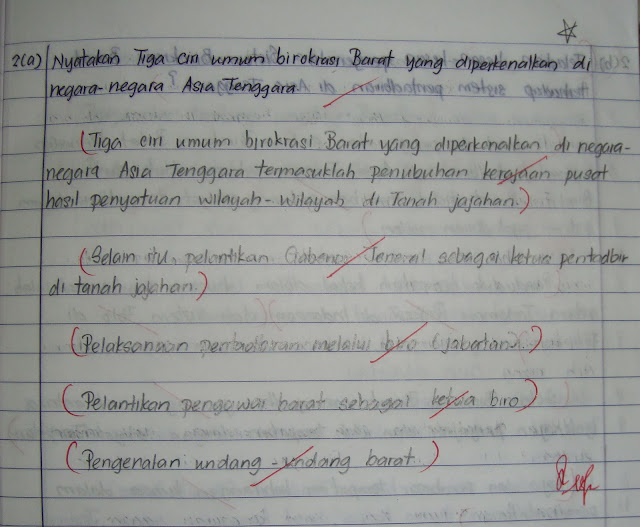 2(a) Nyatakan Tiga ciri umum birokrasi Barat yang diperkenalkan di
negara-negara Asia Tenggara.
(Tiga ciri umum birokrasi Barat yang diperkenalkan di negara-
negara Asia Tenggara termasuklah penubuhan kerajaan pusat
hasil penyatuan wilayah-wilayah di Tanah jajahan.)
(Selain itu, pelantikan Gabenor Jeneral sebagai ketua pentadbir
di tanah jajahan.)
(Pelaksanaan pentadbiran melalui biro (jabatan).)
(Pelantikan pegawai barat sebagai ketua biro)
(Pengenalan undang-undang barat.)